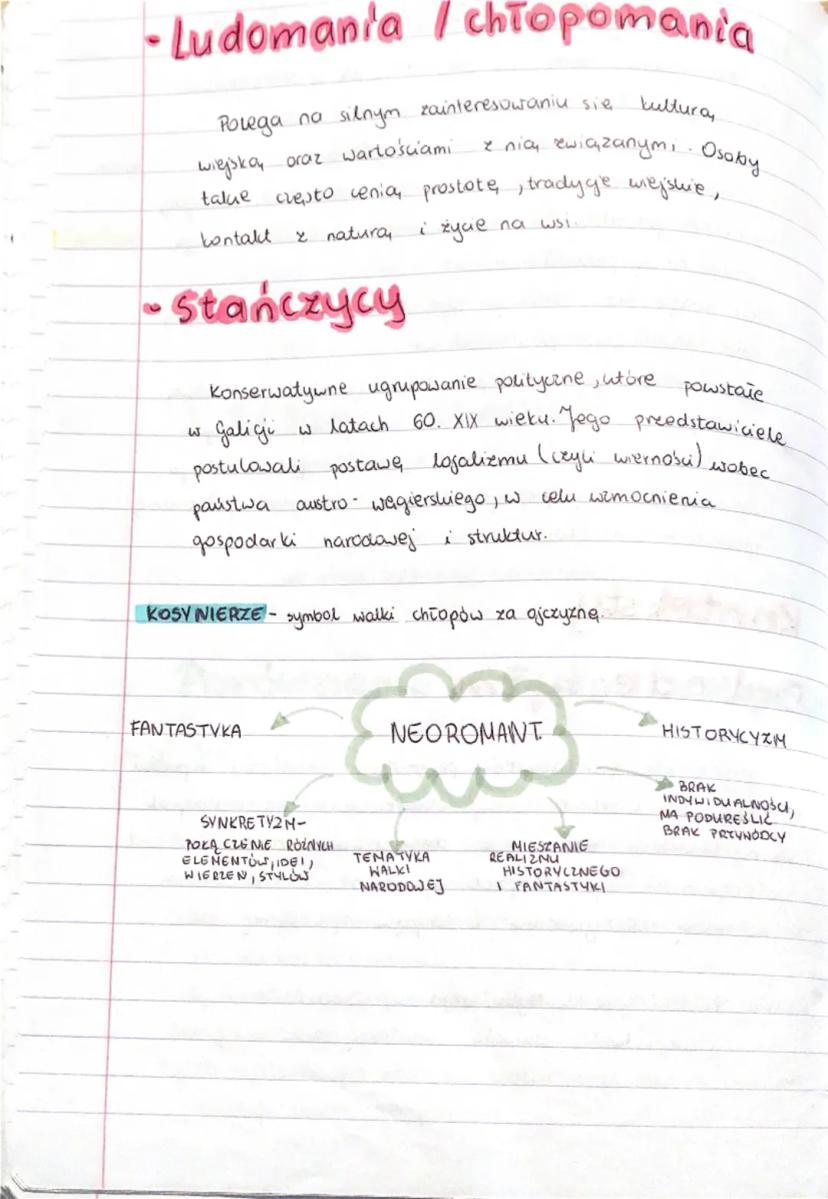 - Ludomania / chłopomania
Polega na silnym zainteresowaniu się kulturą
wiejską oraz wartościami z nią związanymi. Osoby
takie często cenią prostotę, tradycje wiejskie,
kontakt z naturą i życie na wsi.
- Stańczycy
Konserwatywne ugrupowanie polityczne, które powstałe
w Galicji w latach 60. XIX wieku. Jego przedstawiciele
postulowali postawę lojalizmu (czyli wierności) wobec
państwa austro-węgierskiego, w celu wzmocnienia
gospodarki narodowej i struktur.
KOSYNIERZE - symbol walki chłopów za ojczyznę.
NEOROMANT.
FANTASTYKA
HISTORYCYZM
SYNKRETYZM-
POŁĄCZENIE RÓŻNYCH
ELEMENTÓW, IDEI,
WIERZEŃ, STYLÓW
TEMATYKA
WALKI
NARODOWEJ
MIESZANIE
REALIZMU
HISTORYCZNEGO
I FANTASTYKI
BRAK
INDYWIDUALNOŚCI,
MA PODKREŚLIĆ
BRAK PRZYWÓDCY